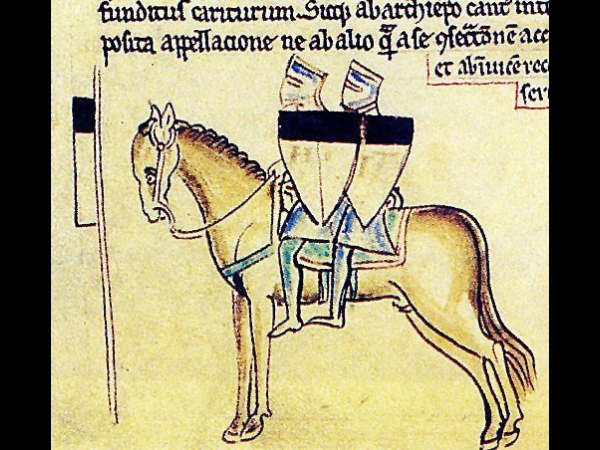 funditus cariturum. Sicq; ab archiepo cant int
posita appellacione ne ab alio qa a se
et abinuice rec
ser